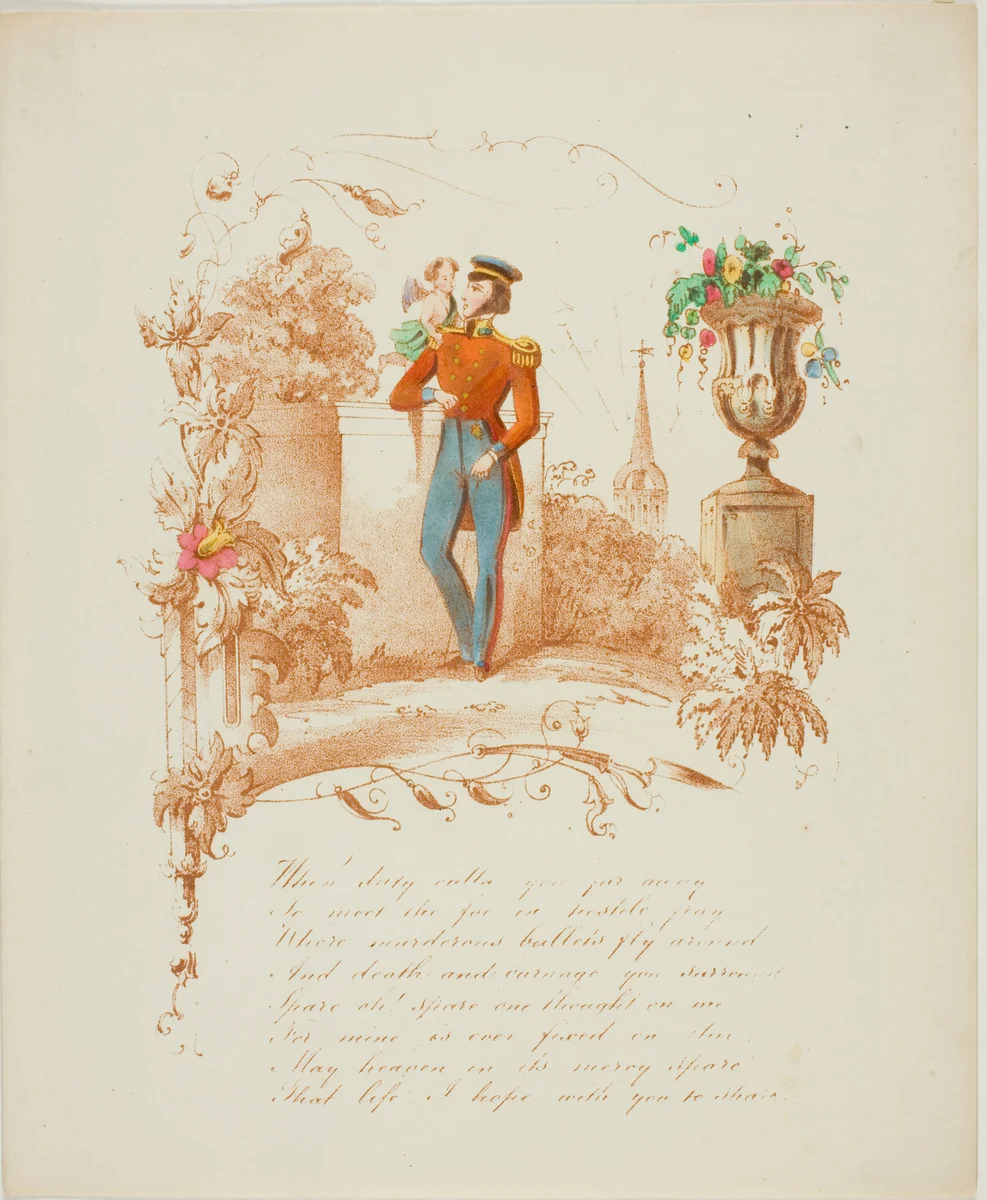 When duty calls you far away
To meet the foe in hostile fray
Where murderous bullets fly around
And death and carnage you surround
Spare oh! spare one thought on me
For mine is ever fixed on thee,
May heaven in its mercy spare
That life I hope with you to share.